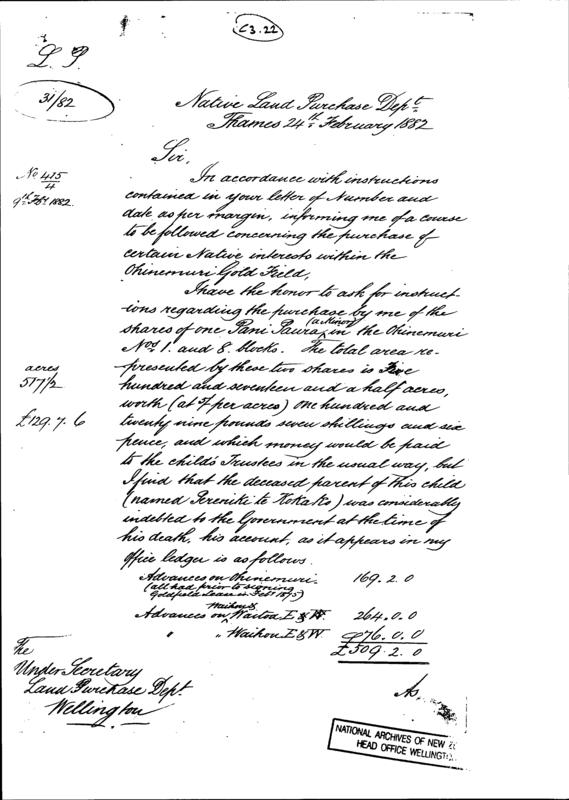 C3.22
L. P.
31/82
Native Land Purchase Dept.
Thames 24th February 1882
Sir,
No 415/4
9th Feby 1882.
In accordance with instructions
contained in your letter of Number and
date as per margin, informing me of a course
to be followed concerning the purchase of
certain Native interests within the
Ohinemuri Gold Field,
I have the honor to ask for instruct-
ions regarding the purchase by me of the
(a Minor)
shares of one Pani Paura in the Ohinemuri
Nos 1. and 8. blocks. The total area re-
acres
517 1/2
presented by these two shares is Five
hundred and seventeen and a half acres,
worth (at 5/ per acres) One hundred and
£129. 7. 6
twenty nine pounds seven shillings and six
pence, and which money would be paid
to the child's Trustees in the usual way, but
I find that the deceased parent of this child
(named Pereniki te Kokako) was considerably
indebted to the Government at the time of
his death, his account, as it appears in my
office ledger is as follows.
Advances on Ohinemuri. 169. 2. 0
(all had prior to signing
Goldfield Lease in Feby 1875)
Waihou &
Advances on Waitoa E & W. 264. 0. 0
" " Waihou E & W 76. 0. 0
£509. 2. 0
The
Under Secretary
Land Purchase Dept.
Wellington
As
NATIONAL ARCHIVES OF NEW
HEAD OFFICE WELLINGTO